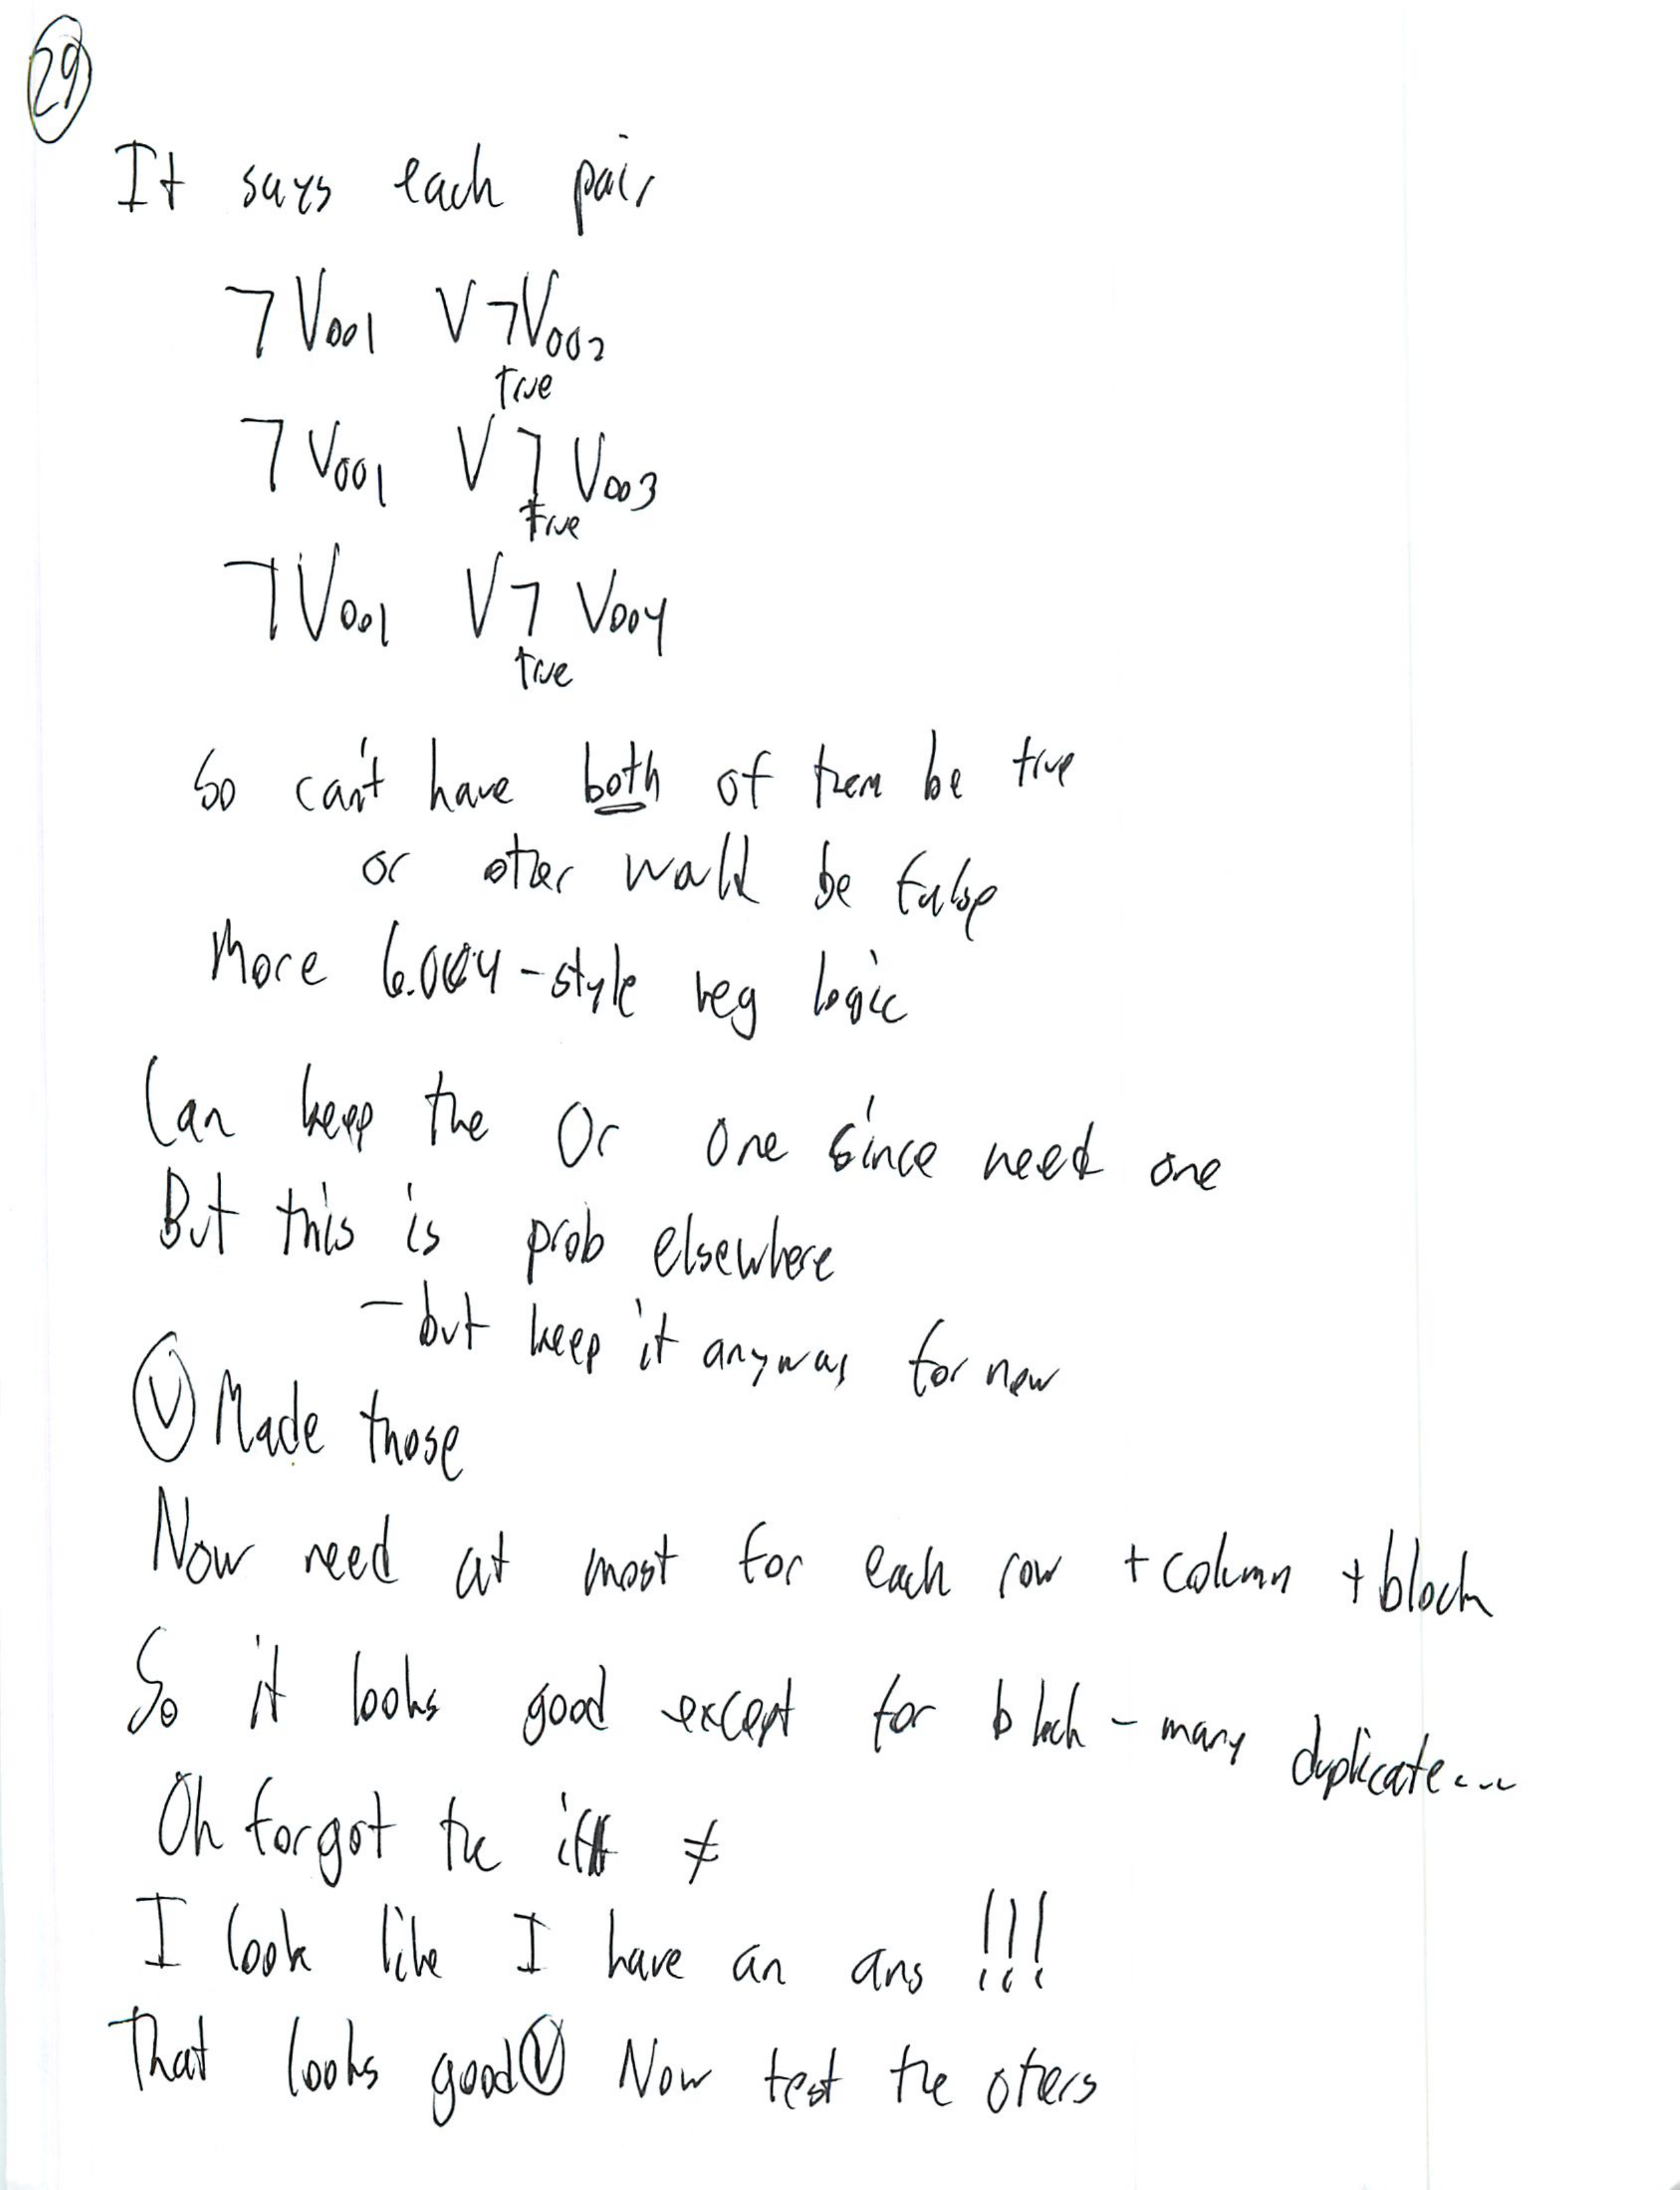 29
It says each pair
¬V001 V ¬V002
true
¬V001 V ¬V003
true
¬V001 V ¬V004
true
So can't have both of them be true
or other would be false
More 6.004-style neg logic
Can keep the Or one since need one
But this is prob elsewhere
- but keep it anyway for now
✓ Made those
Now need at most for each row + column + block
So it looks good except for block - many duplicate...
Oh forgot the ≠
I look like I have an ans !!!
That looks good ✓ Now test the others